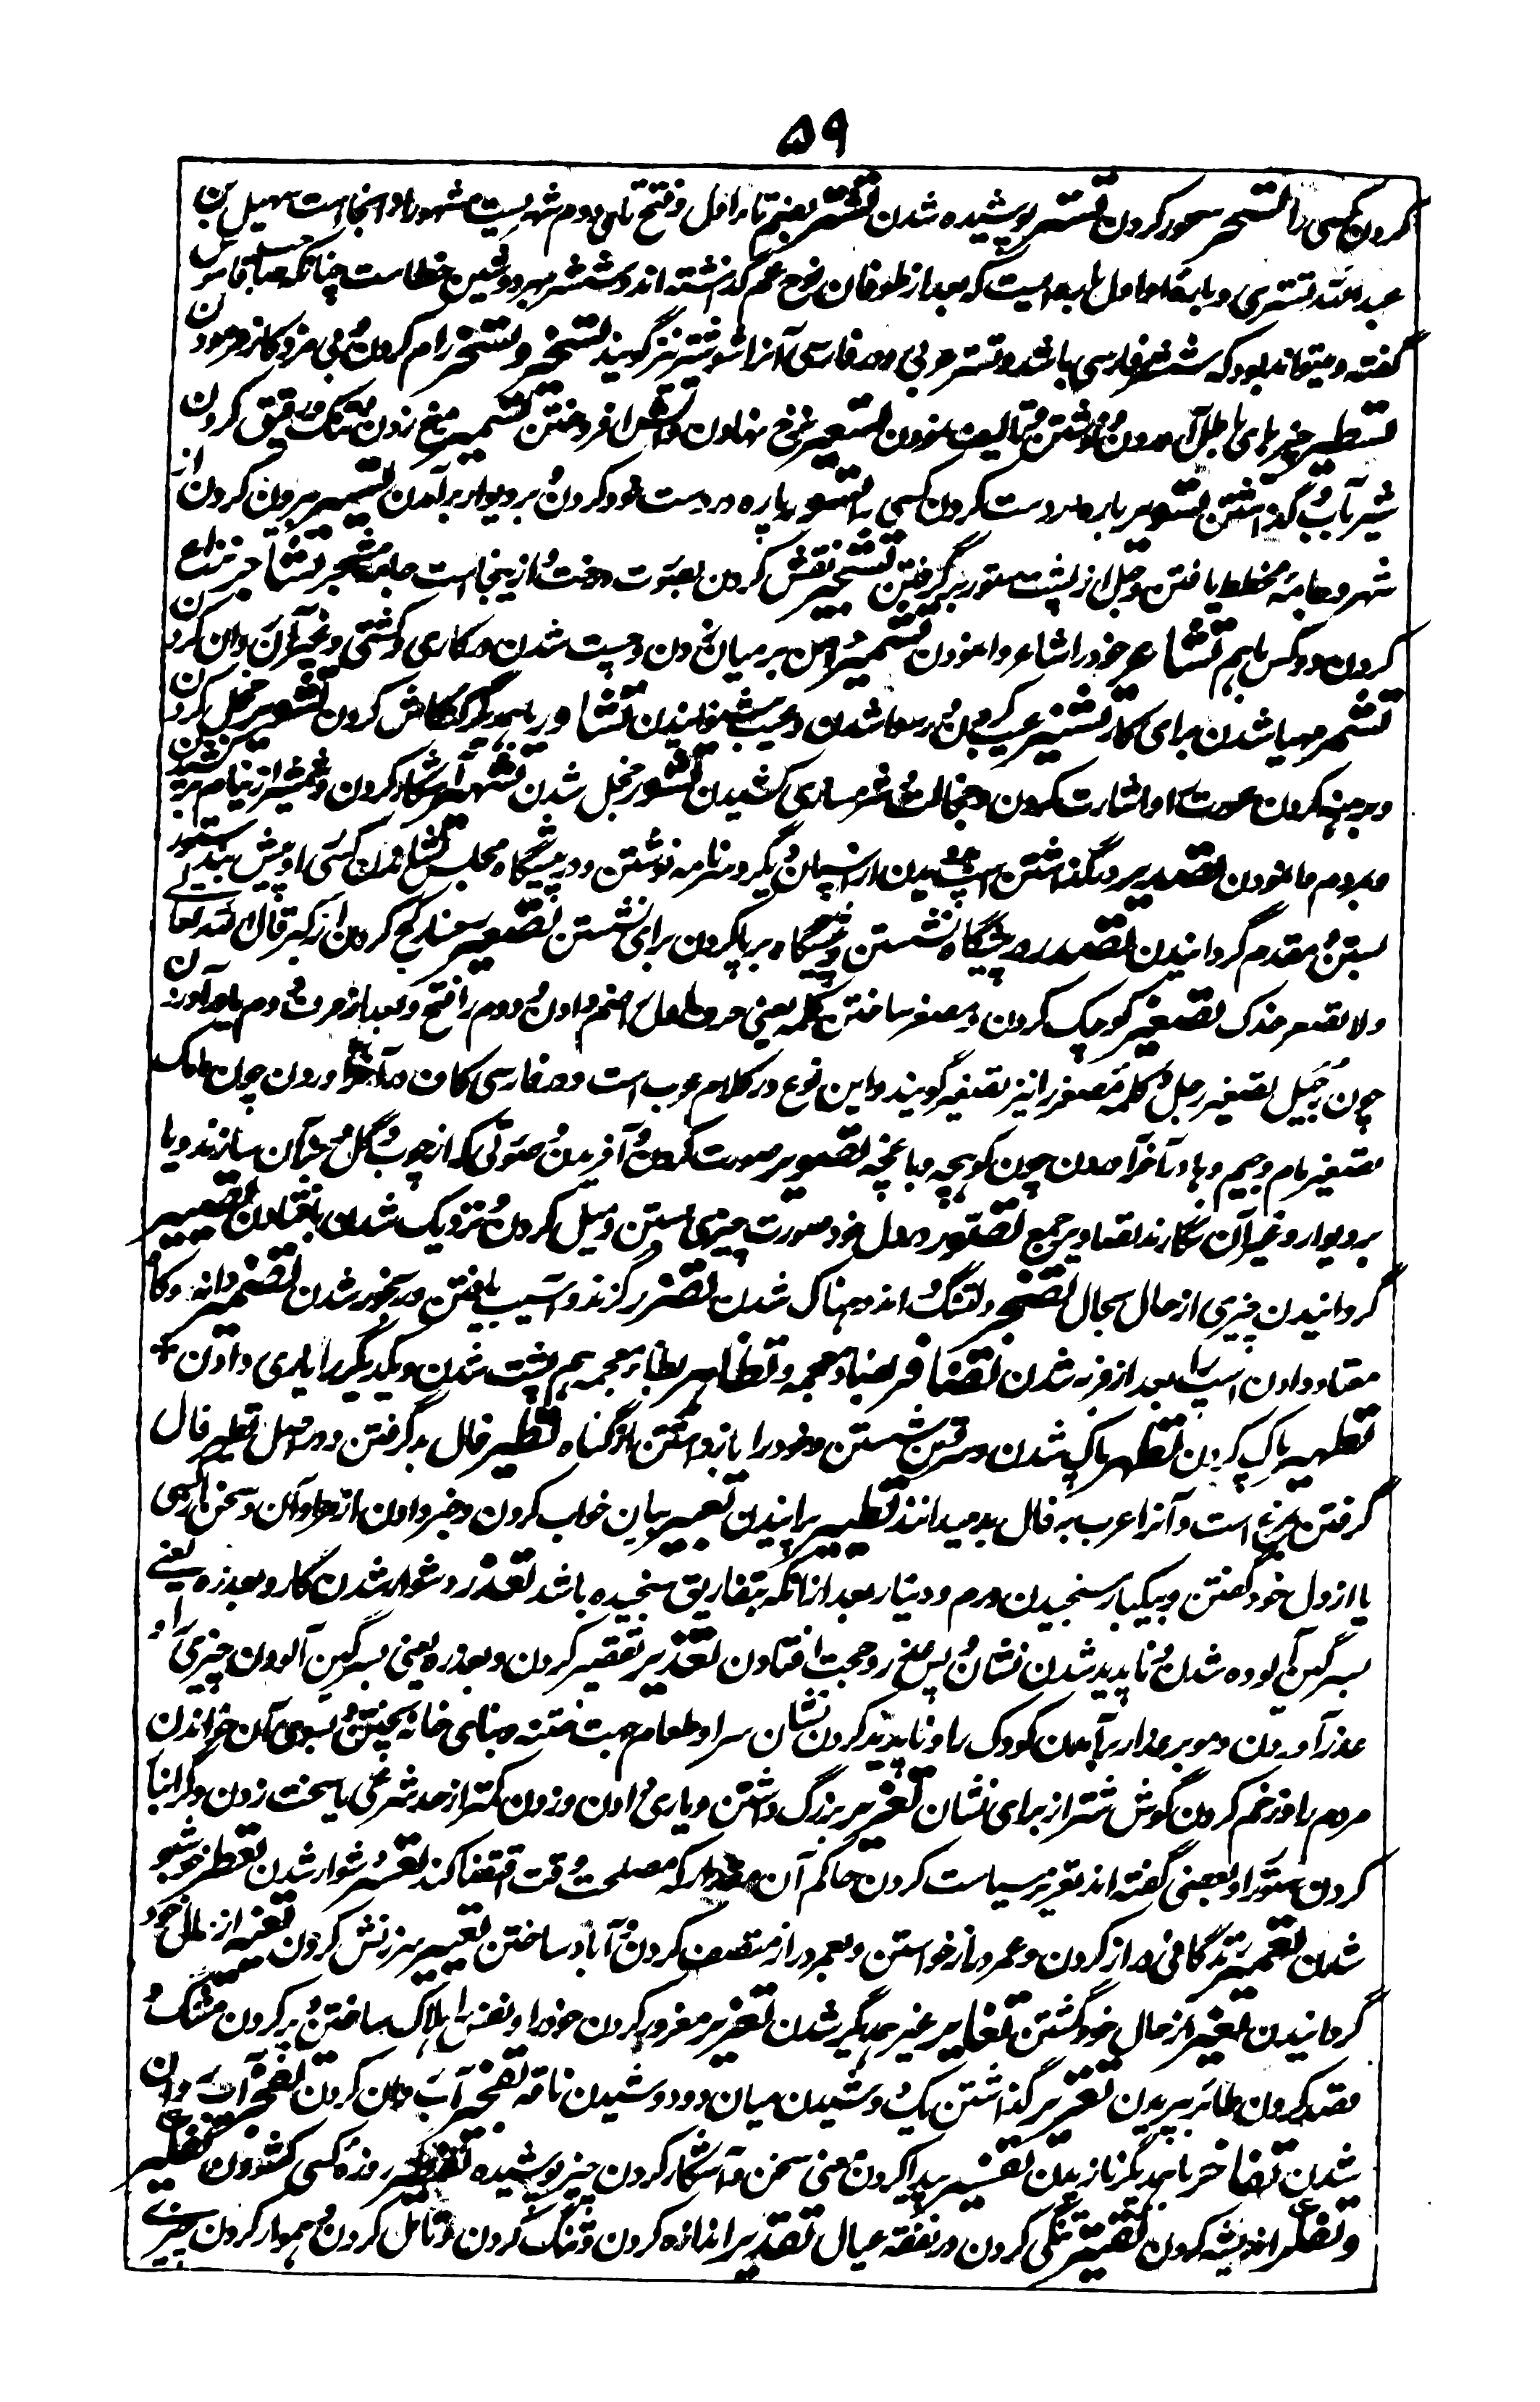 ۵۹
کردن کسی را تسحر سحور کردن تستر پوشیده شدن تستر بضم تا مر اول و فتح تای دوم شهریست مشهور و از آنجا است سهیل بن
عبدالله تستری و بابقا اول بلده ایست که بعد از طوفان نوح عم گذشته اند و ششتر بهر دو شین خطاست چنانکه صاحب قاموس
گفته و میتواند بود که ششتر فارسی باشد و تستر عربی و در فارسی آنرا شوشتر نیز گویند تسخیر و تسخر رام کردن و بی مزد کار فرمودن
تسطیر چیزهای باطل آوردن و نوشتن و تالیف نمودن تسعیر نرخ نهادن و آتش افروختن تسمیر میخ زدن و تنک و رقیق کردن
شیر بآب و گذاشتن تسویر یاره در دست کردن کسی را تسور یاره در دست خود کردن و بر دیوار برآمدن تسییر بیرون کردن از
شهر و جامه مخطط بافتن و جل از پشت ستور برگرفتن تشجیر نقش کردن بصورت درخت و ازینجا است جامه مشجر تشاجر نزاع
کردن دو کس باهم تشاعر خود را شاعر وا نمودن تشمیر دامن بر میان زدن و چست شدن در کاری و کشتی و غیر آن روان کردن
تشمر مهیا شدن برای کار تشنیر عیب کردن و رسوا شدن و عیب شنوانیدن تشاور باهمدیگر کنکاش کردن تشویر خجل کردن
و برهنه کردن عورت او و اشارت کردن و خجالت و شرمساری کشیدن تشور خجل شدن تشهیر آشکار کردن و شمشیر از نیام برکشیدن
و بمردم وا نمودن تصدیر در گذاشتن اسپ از اسپان دیگر و سرنامه نوشتن و در پیشگاه مجلس نشاندن کسی را و پیش بند ستور
بستن و مقدم گردانیدن تصدر در پیشگاه نشستن و پیشگاه بر پا کردن برای نشستن تصعیر رخسار کج کردن از کبر قال الله تعالی
و لا تصعر خدک تصغیر کوچک کردن و مصغر ساختن کلمه یعنی حرف اول را ضم دادن و دوم را فتح و بعد از حرف دوم یا در آوردن
چون رجیل تصغیر رجل و کلمه مصغر را نیز تصغیر گویند و این نوع در کلام عرب است و در فارسی کاف در آخر آوردن چون مامک
تصغیر مام و جیم و ها در آخر آمدن چون کوچه و باغچه تصویر صورت کردن و آفریدن و صورتی که از چوب و گل و جز آن سازند و یا
بر دیوار و غیر آن نگارند تصاویر جمع تصور در دل خود صورت چیزی بستن و میل کردن و نزدیک شدن بافتادن تصییر
گردانیدن چیزی از حال بحال تضجر دلتنگ و اندوهناک شدن تضرر گزند و آسیب یافتن و رنجور شدن تضمیر دانه و کاه
معتاد دادن اسپ را بعد از فربه شدن تضافر بضاد معجمه و تظاهر بظا معجمه هم پشت شدن و یکدیگر را یاری دادن *
تطهیر پاک کردن تطهر پاک شدن و سر و تن شستن و خود را باز داشتن از گناه تطیر فال بد گرفتن و در اصل تطیر فال
گرفتن بمرغ است و آنرا عرب به فال بد میدانند تطییر پرانیدن تعبیر بیان خواب کردن و خبر دادن از مراد آن و سخن از کسی
یا از دل خود گفتن و بیکبار سنجیدن درم و دینار بعد از آنکه بتفاریق سنجیده باشد تعذر دشوار شدن کار و بعذره یعنی
بسرگین آلوده شدن و ناپدید شدن نشان و پس ماندن و حجت افتادن تعذیر تقصیر کردن و بعذره یعنی بسرگین آلودن چیزی را و
عذر آوردن و مو بر عذار برآمدن کودک را و ناپدید کردن نشان سرا و طعام جهت ختنه و بنای خانه پختن و بسوی آن خواندن
مردم را و زخم کردن گوش شتر از برای نشان تعزیر بزرگ داشتن و یاری دادن و زدن کمتر از حد شرعی یا سخت زدن و گرانبار
کردن ستور را و بعضی گفته اند تعزیر سیاست کردن حاکم آن مقدار که مصلحت وقت اقتضا کند تعسر دشوار شدن تعطر خوشبو
شدن تعمیر زندگانی دراز کردن و عمر دراز خواستن و بعمر دراز متصف کردن و آباد ساختن تعییر سرزنش کردن تغییر از حال خود
گردانیدن تغیر از حال خود گشتن تغایر غیر همدیگر شدن تغریر مغرور کردن خود را و نفس را هلاک ساختن و پر کردن مشک و
قصد کردن طائر بپریدن تغریر گذاشتن یک دوشیدن میان دو دوشیدن ناقه تفجیر آب روان کردن تفجر آب روان
شدن تفاخر باهمدیگر نازیدن تفسیر پیدا کردن معنی سخن و آشکار کردن چیز پوشیده تفطیر روزه کسی کشودن تفکیر
و تفکر اندیشه کردن تقتیر تنگی کردن در نفقه عیال تقدیر اندازه کردن و تنگ کردن و تامل کردن و هموار کردن چیزی